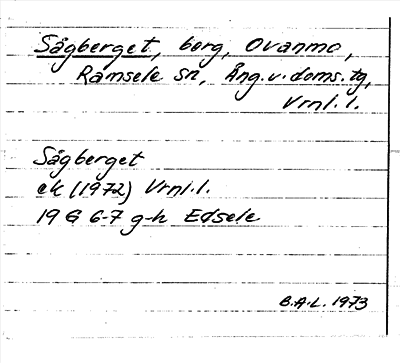 Sågberget, berg, Ovanmo,
Ramsele sn, Ång. v. doms. tg,
Vrnl. l.
Sågberget
ek (1972) Vrnl. l.
19 G 6-7 g-h Edsele
B.A.L. 1973